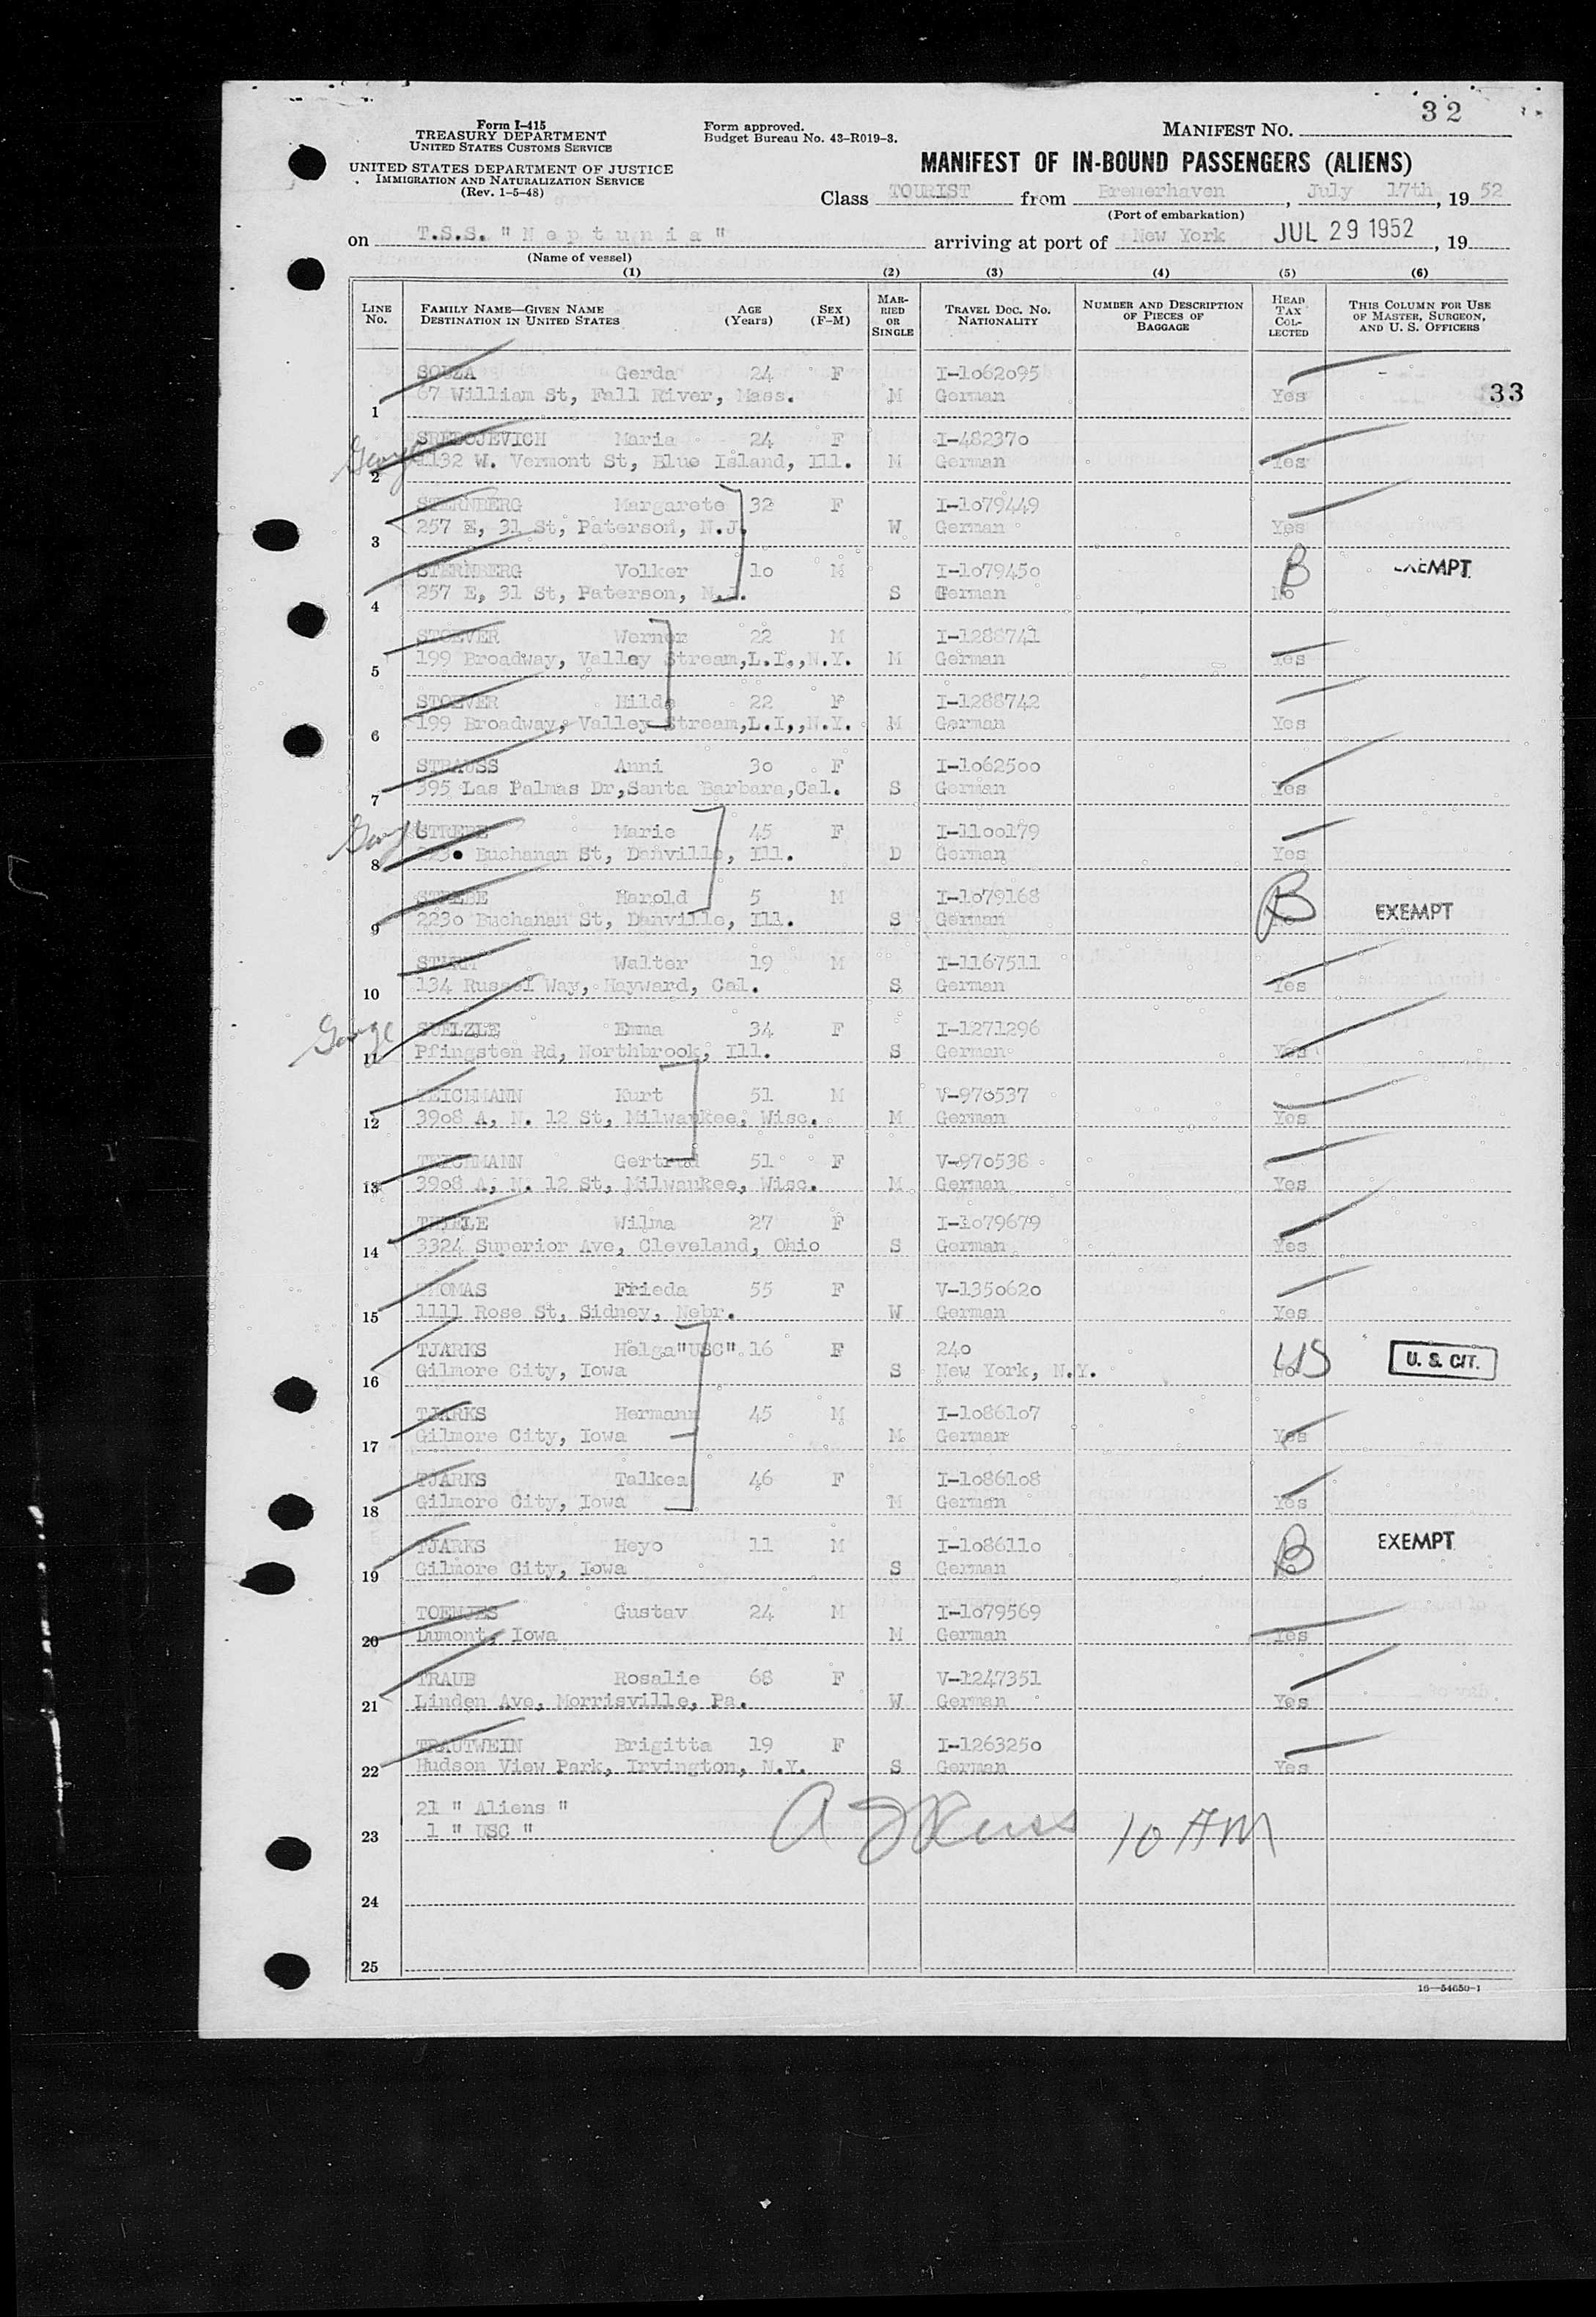 32
Form I-415
TREASURY DEPARTMENT
UNITED STATES CUSTOMS SERVICE
UNITED STATES DEPARTMENT OF JUSTICE
IMMIGRATION AND NATURALIZATION SERVICE
(Rev. 1-5-48)
Form approved.
Budget Bureau No. 43-R019-3.
MANIFEST NO.
MANIFEST OF IN-BOUND PASSENGERS (ALIENS)
Class TOURIST from Bremerhaven, July 17th, 19 52
(Port of embarkation)
on T.S.S. " N e p t u n i a " arriving at port of New York JUL 29 1952, 19
(Name of vessel)
(1) (2) (3) (4) (5) (6)
LINE No. FAMILY NAME—GIVEN NAME DESTINATION IN UNITED STATES AGE (Years) SEX (F-M) MARRIED OR SINGLE TRAVEL DOC. NO. NATIONALITY NUMBER AND DESCRIPTION OF PIECES OF BAGGAGE HEAD TAX COLLECTED THIS COLUMN FOR USE OF MASTER, SURGEON, AND U. S. OFFICERS
SOUZA Gerda 24 F I-1062095
1 67 William St, Fall River, Mass. M German Yes 33
SREDOJEVICH Maria 24 F I-482370
George 2 1132 W. Vermont St, Blue Island, Ill. M German Yes
STERNBERG Margarete 32 F I-1079449
3 257 E, 31 St, Paterson, N.J. W German Yes
STERNBERG Volker 10 M I-1079450 B EXEMPT
4 257 E, 31 St, Paterson, N.J. S German No
STOEVER Werner 22 M I-1288741
5 199 Broadway, Valley Stream,L.I.,N.Y. M German Yes
STOEVER Hilde 22 F I-1288742
6 199 Broadway, Valley Stream,L.I,,N.Y. M German Yes
STRAUSS Anni 30 F I-1062500
7 395 Las Palmas Dr,Santa Barbara,Cal. S German Yes
George STREBE Marie 45 F I-1100179
8 2230 Buchanan St, Danville, Ill. D German Yes
STREBE Harold 5 M I-1079168 B
9 2230 Buchanan St, Danville, Ill. S German No EXEMPT
Walter 19 M I-1167511
10 134 Russel Way, Hayward, Cal. S German Yes
George SUELZLE Emma 34 F I-1271296
11 Pfingsten Rd, Northbrook, Ill. S German Yes
TEICHMANN Kurt 51 M V-970537
12 3908 A, N. 12 St, Milwaukee, Wisc. M German Yes
TEICHMANN Gertrud 51 F V-970538
13 3908 A, N. 12 St, Milwaukee, Wisc. M German Yes
THIELE Wilma 27 F I-1079679
14 3324 Superior Ave, Cleveland, Ohio S German Yes
THOMAS Frieda 55 F V-1350620
15 1111 Rose St, Sidney, Nebr. W German Yes
TJARKS Helga"USC" 16 F 240 US U. S. CIT.
16 Gilmore City, Iowa S New York, N.Y. No
TJARKS Hermann 45 M I-1086107
17 Gilmore City, Iowa M German Yes
TJARKS Talkea 46 F I-1086108
18 Gilmore City, Iowa M German Yes
TJARKS Heyo 11 M I-1086110 B EXEMPT
19 Gilmore City, Iowa S German No
TOENJES Gustav 24 M I-1079569
20 Dumont, Iowa M German Yes
TRAUB Rosalie 68 F V-1247351
21 Linden Ave, Morrisville, Pa. W German Yes
TRAUTWEIN Brigitta 19 F I-1263250
22 Hudson View Park, Irvington, N.Y. S German Yes
21 " Aliens "
23 1 " USC " 10 AM
24
25
16—54650-1